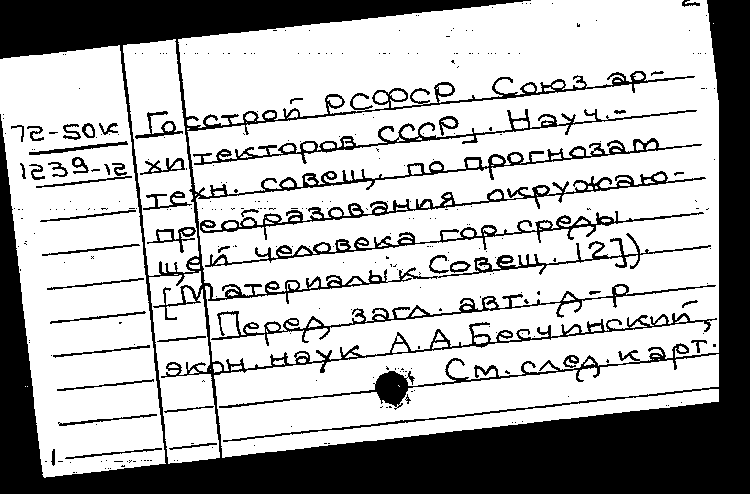 72-50к Госстрой РСФСР. Союз ар-
1239-12 хитекторов СССР]. Науч.-
техн. совещ. по прогнозам
преобразования окружаю-
щей человека гор. среды.
[Материалы к Совещ. 12]).
Перед загл. авт.: д-р
экон. наук А.А.Бесчинский,
См. след. карт.